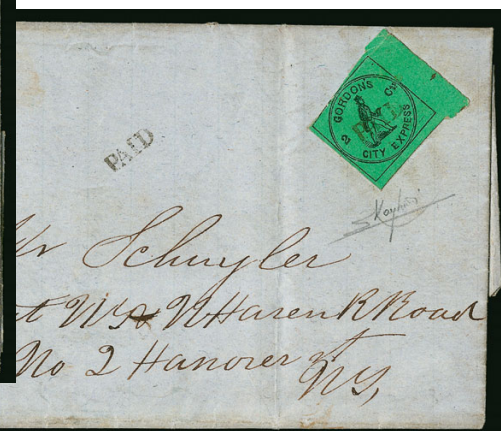 GORDONS
2 Cts
CITY EXPRESS
PAID
PAID
Mr Schuyler
at NY & N Haven R Road
No 2 Hanover st
NY,